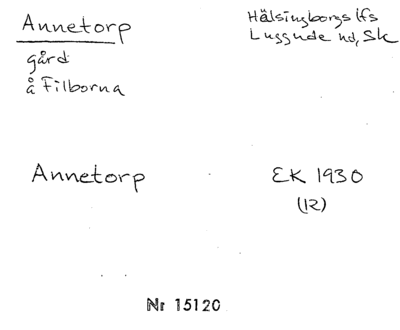 Annetorp
Hälsingborgs lfs
Luggude hd, Sk
gård
å Filborna
Annetorp
EK 1930
(12)
Nr 15120